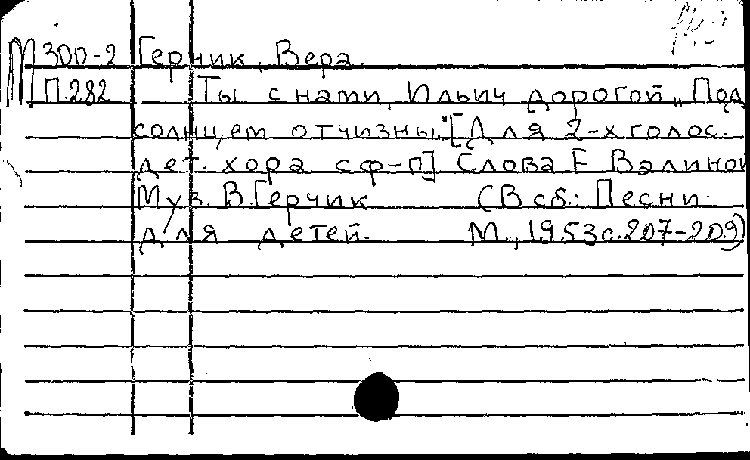 М 300-2 Герчик, Вера.
П.282 Ты с нами, Ильич дорогой „Под
солнцем отчизны." [Для 2-х голос.
дет. хора с ф-п] Слова Е Валиной
Муз. В.Герчик (В сб.: Песни
для детей. М., 1953с.207-209)